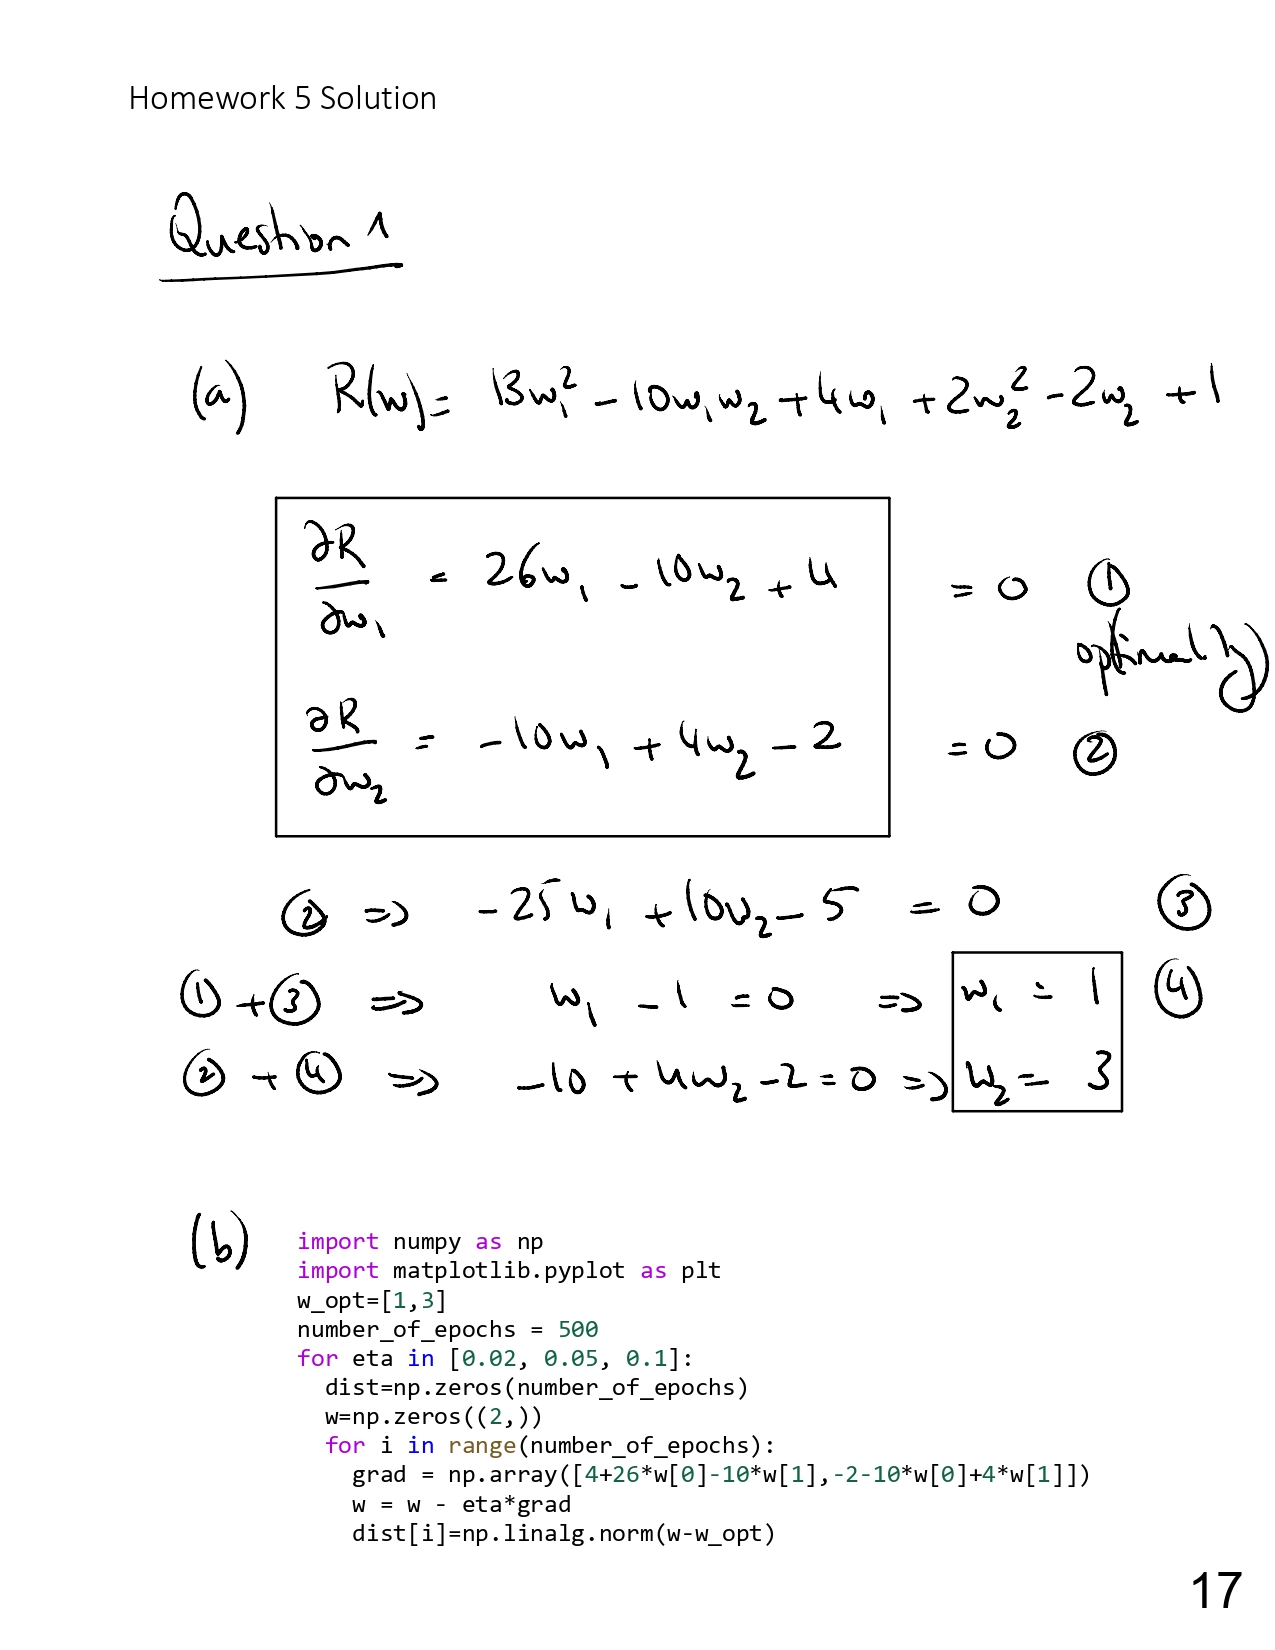 Homework 5 Solution
Question 1
(a) R(w) = 13w₁² - 10w₁w₂ + 4w₁ + 2w₂² - 2w₂ + 1
∂R/∂w₁ = 26w₁ - 10w₂ + 4 = 0 ①
optimality
∂R/∂w₂ = -10w₁ + 4w₂ - 2 = 0 ②
② => -25w₁ + 10w₂ - 5 = 0 ③
① + ③ => w₁ - 1 = 0 => w₁ = 1 ④
② + ④ => -10 + 4w₂ - 2 = 0 => w₂ = 3
(b) import numpy as np
import matplotlib.pyplot as plt
w_opt=[1,3]
number_of_epochs = 500
for eta in [0.02, 0.05, 0.1]:
  dist=np.zeros(number_of_epochs)
  w=np.zeros((2,))
  for i in range(number_of_epochs):
    grad = np.array([4+26*w[0]-10*w[1],-2-10*w[0]+4*w[1]])
    w = w - eta*grad
    dist[i]=np.linalg.norm(w-w_opt)
17